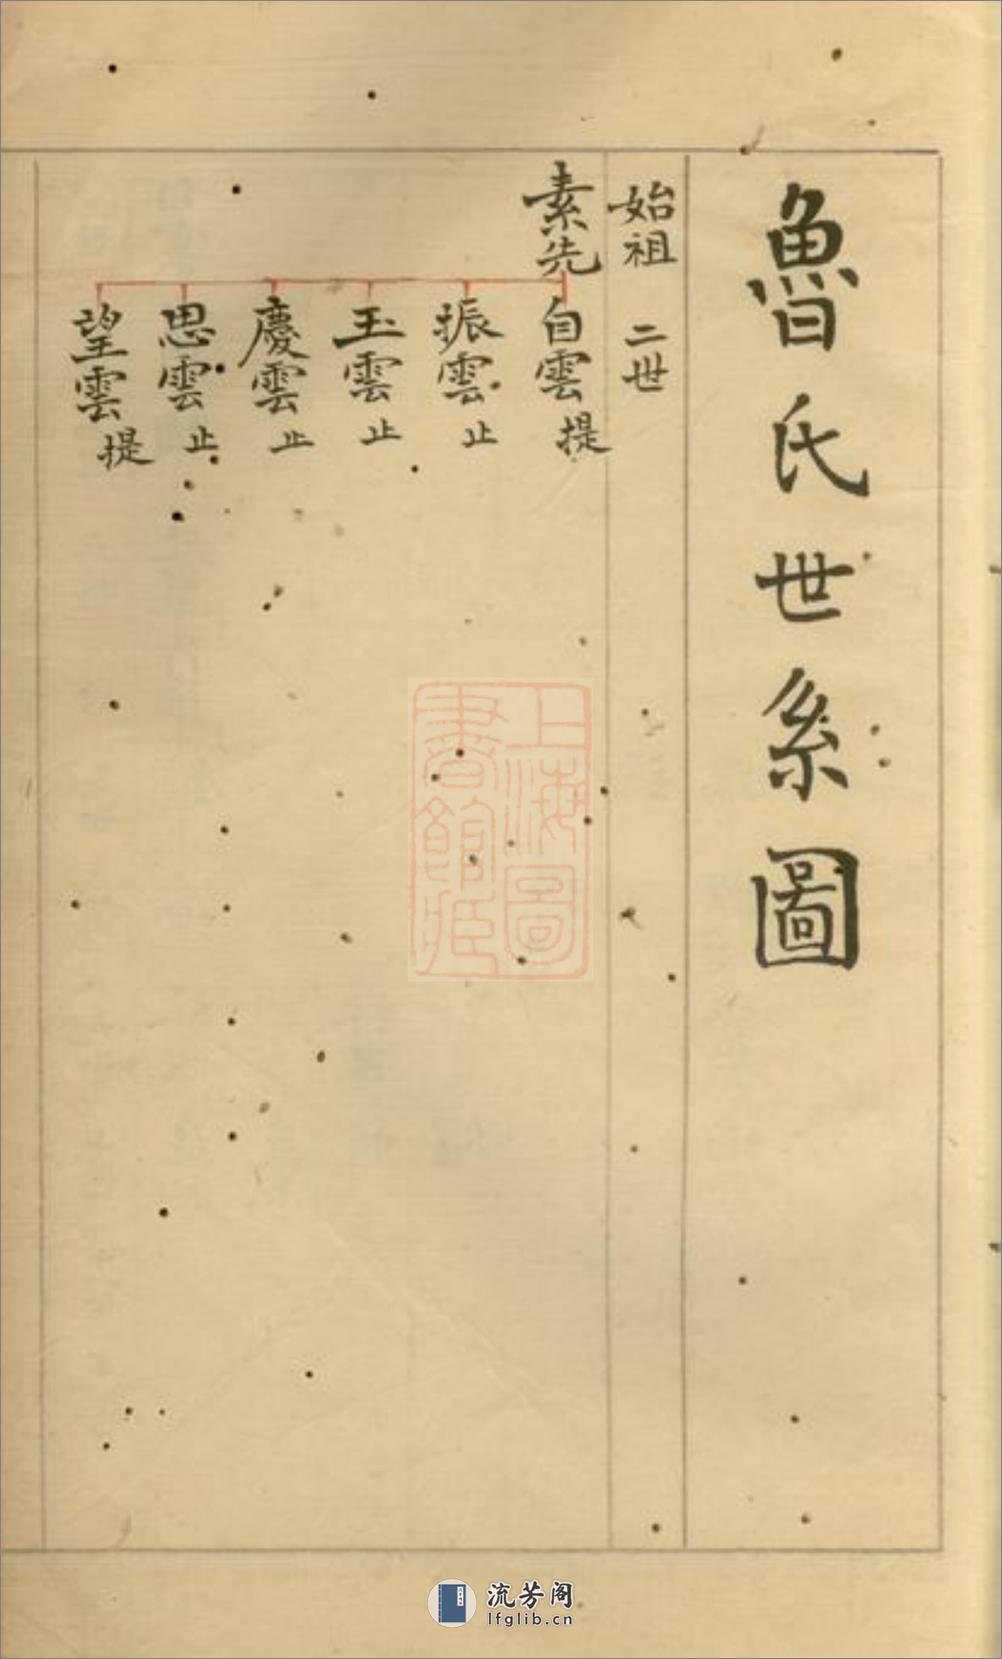 魯氏世系圖
始祖 二世
素先
自雲 提
振雲 止
玉雲 止
慶雲 止
思雲 止
望雲 提
上海圖
書館藏
流芳阁
lfglib.cn